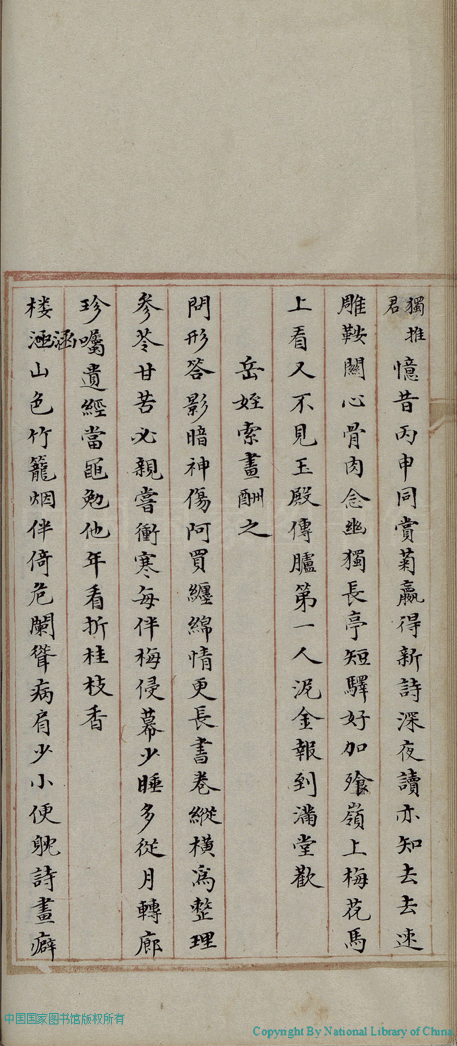 獨推君憶昔丙申同賞菊贏得新詩深夜讀亦知去去速
雕鞍關心骨肉念幽獨長亭短驛好加飱嶺上梅花馬
上看又不見玉殿傳臚第一人泥金報到滿堂歡
岳姪索畫酬之
問形答影暗神傷阿買纏綿情更長書卷縱橫為整理
參苓甘苦必親嘗衝寒每伴梅侵幕少睡多從月轉廊
珍囑遺經當黽勉他年看折桂枝香
楼涵涵山色竹籠烟伴倚危闌聳病肩少小便躭詩畫癖
中国国家图书馆版权所有
Copyright By National Library of China.